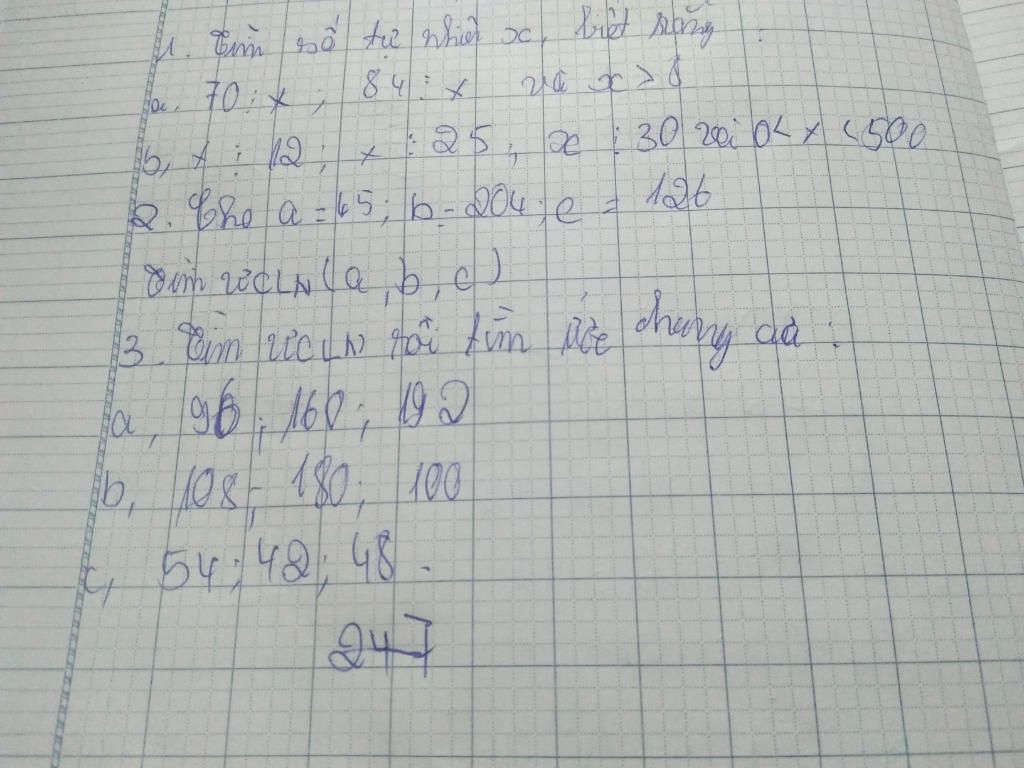 1. Tìm số tự nhiên x, biết rằng :
a. 70 ⋮ x ; 84 ⋮ x và x > 8
b, x ⋮ 12 ; x ⋮ 25 ; x ⋮ 30 và 0 < x < 500
2. Cho a = 45 ; b = 204 ; c = 126
Tìm ƯCLN (a, b, c)
3. Tìm ƯCLN rồi tìm ước chung của :
a, 96 ; 160 ; 192
b, 108 ; 180 ; 100
c, 54 ; 42 ; 48 .
247